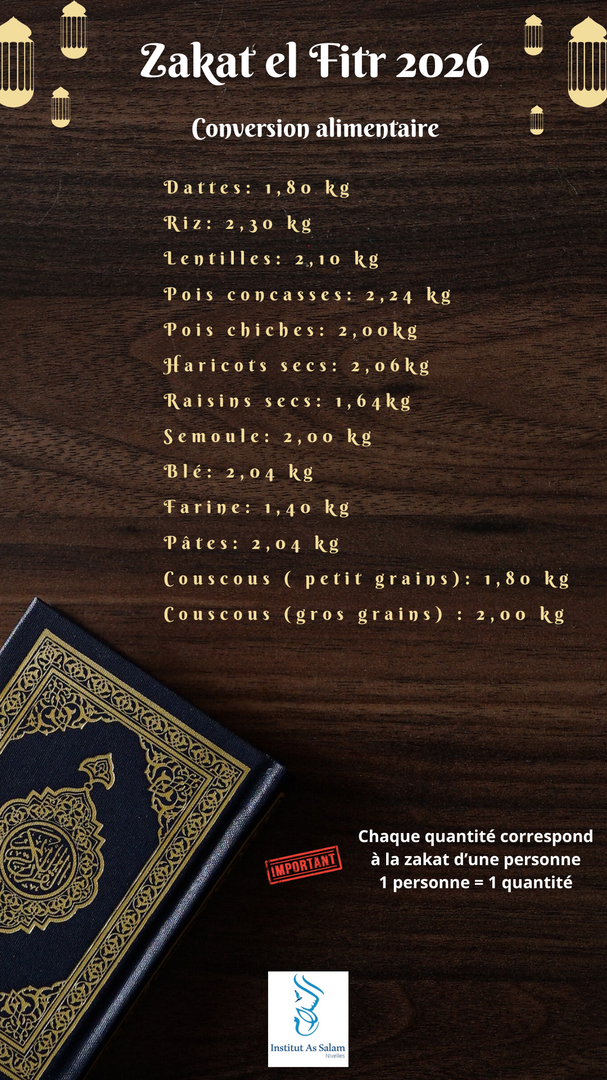 Zakat el Fitr 2026
Conversion alimentaire
Dattes: 1,80 kg
Riz: 2,30 kg
Lentilles: 2,10 kg
Pois concasses: 2,24 kg
Pois chiches: 2,00kg
Haricots secs: 2,06kg
Raisins secs: 1,64kg
Semoule: 2,00 kg
Blé: 2,04 kg
Farine: 1,40 kg
Pâtes: 2,04 kg
Couscous ( petit grains): 1,80 kg
Couscous (gros grains) : 2,00 kg
IMPORTANT
Chaque quantité correspond
à la zakat d’une personne
1 personne = 1 quantité
Institut As Salam
Nivelles